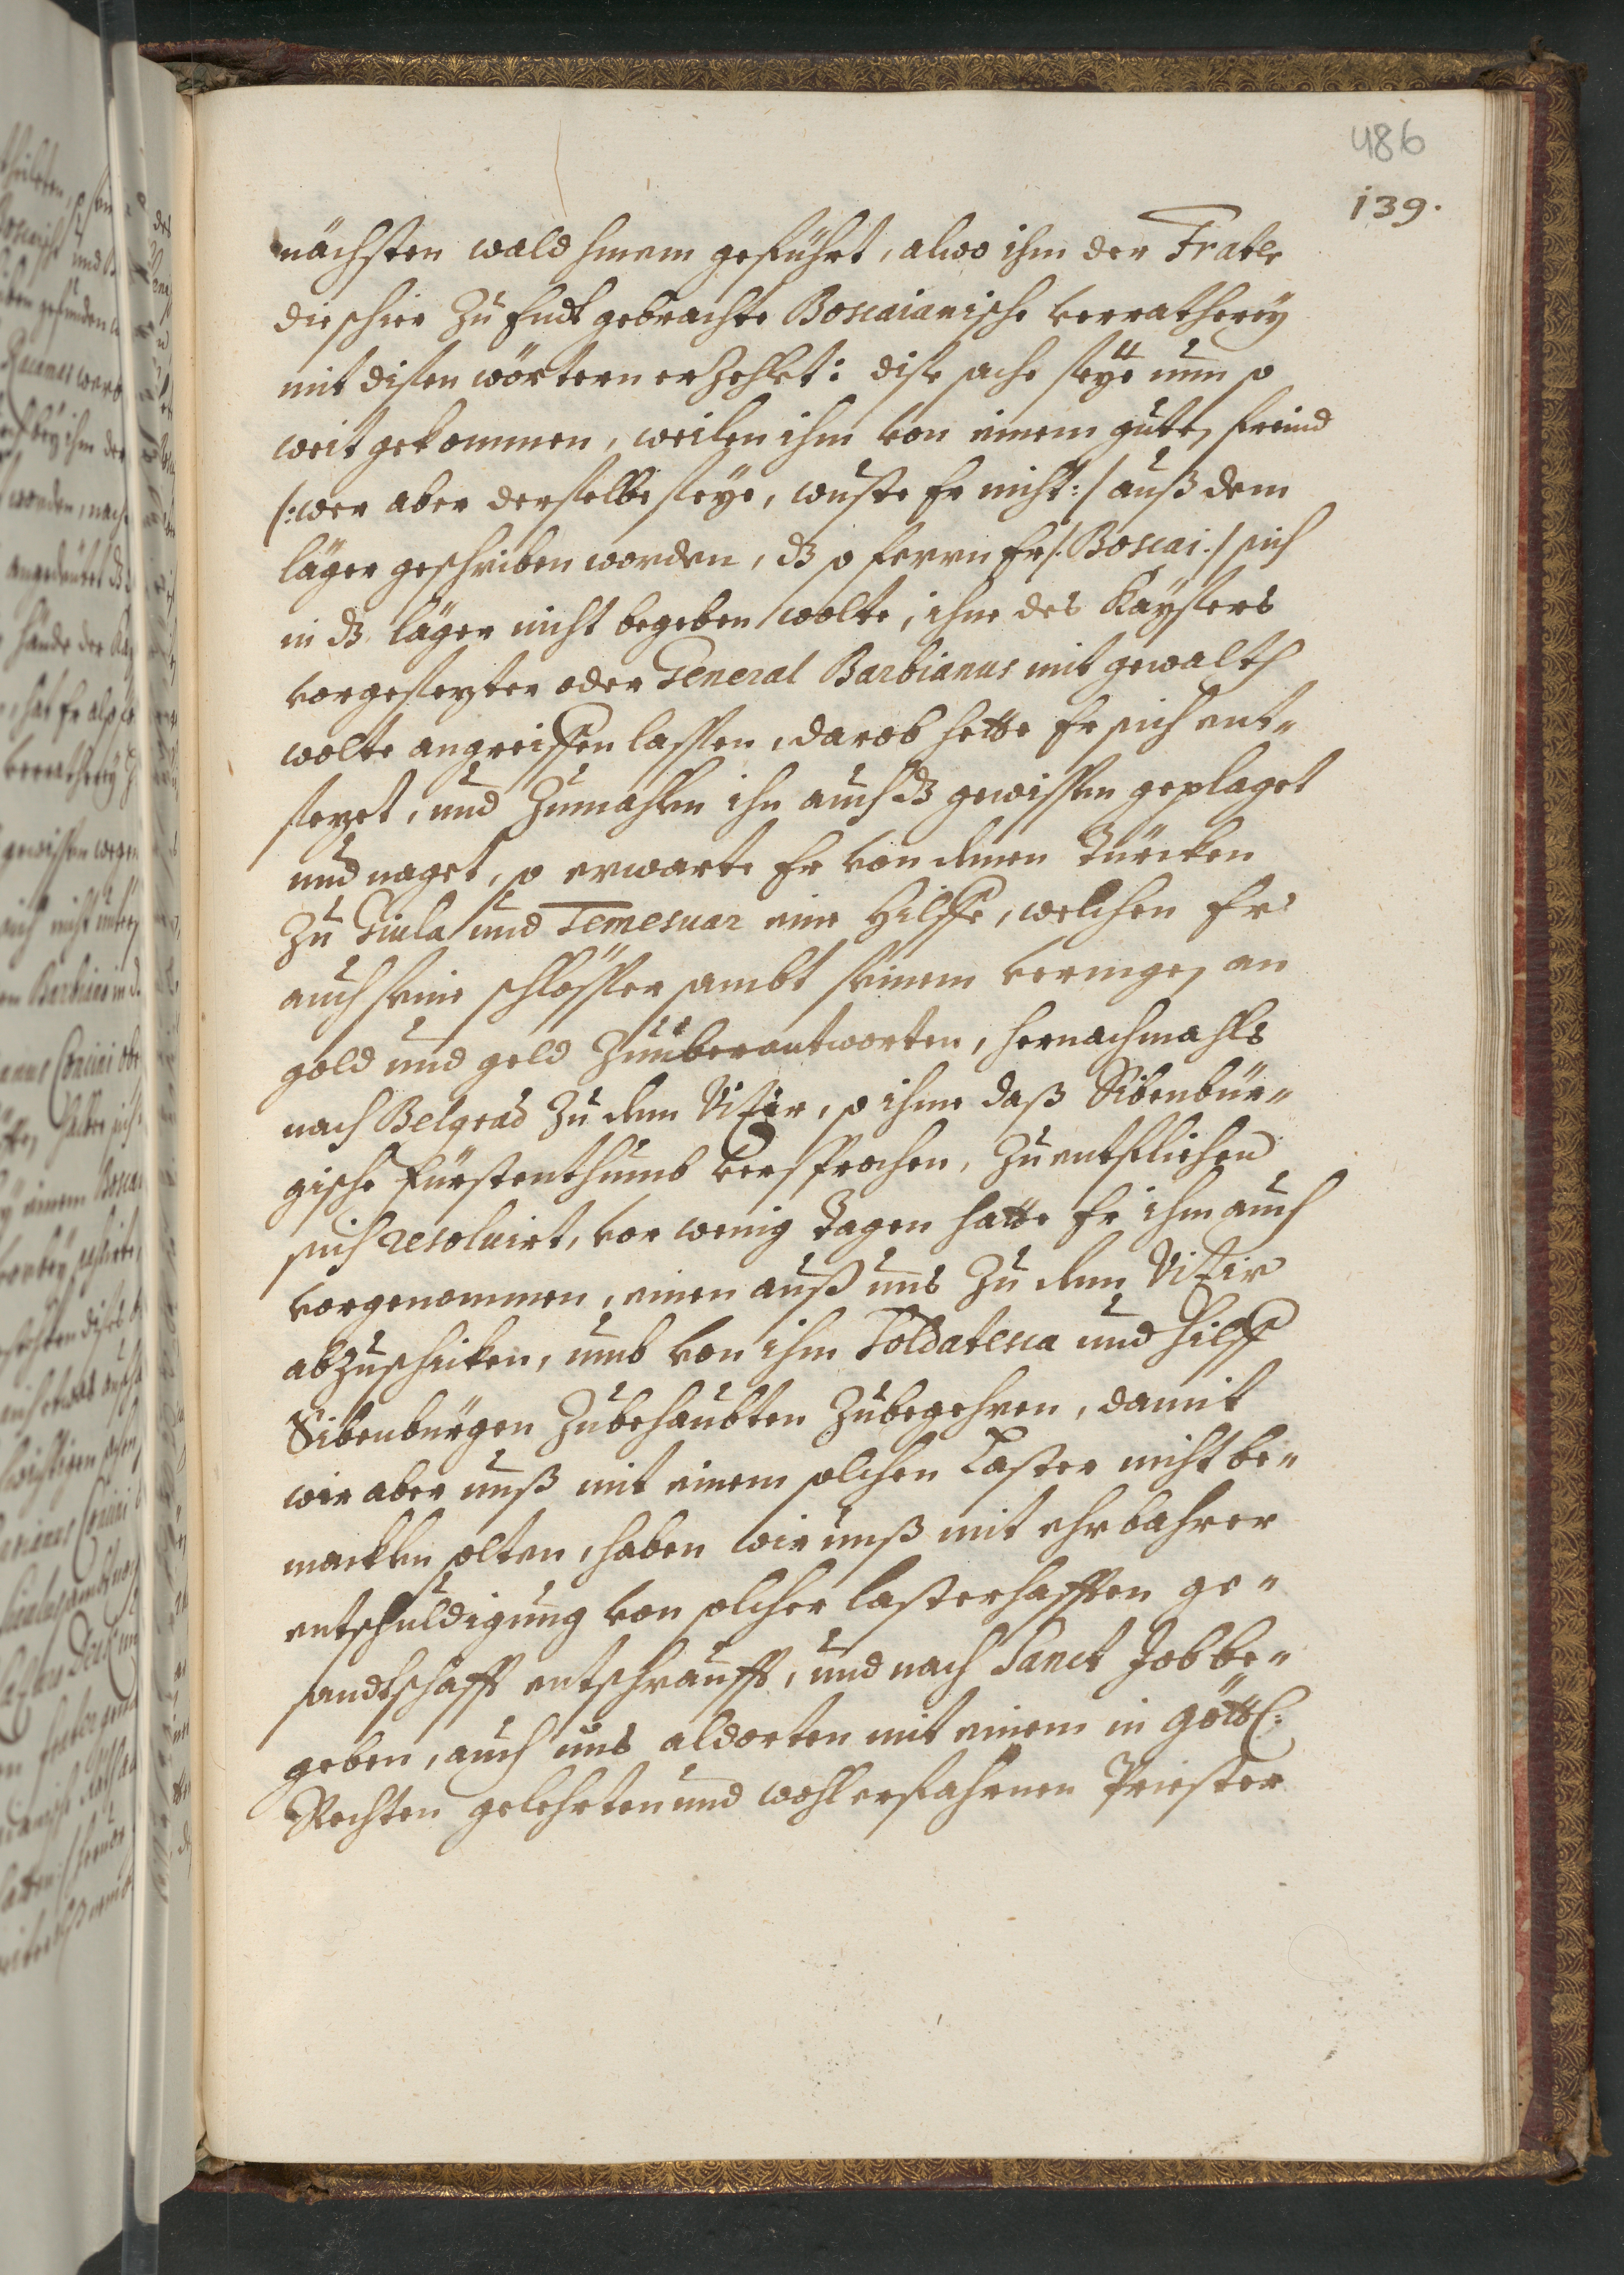 486
139.
nächsten wald hinein geführt, alwo ihm der Frater
die schier zu Endt gebrachte Boscaianische verratherey
mit disen wörtern erzehlet: dise sache seÿe nun so
weit gekommen, weilen ihm von einem guten freind
/:wer aber derselbe seÿe, wuste Er nicht:/ auß dem
läger geschriben worden, dz so ferrn Er /:Boscai:/ sich
in dz läger nicht begeben wolte, ihne des Kaÿsers
vorgesezter oder General Barbianus mit gewalth
wolte angreiffen lassen, darob hette Er sich ent-
sezet, und zumahlen ihn auch dz gewissen geplaget
und naget, so erwarte Er von denen Türcken
zu Giula und Temesuar eine Hilffe, welchen Er
auch seine schlösser sambt seinem vermögen an
gold und geld zu überantworten, hernachmahls
nach Belgrad zu dem Vizir, so ihme daß Sibenbür-
gische fürstenthumb versprochen, zu entfliehen
sich resoluirt, vor wenig tagen hatte Er ihm auch
vorgenommen, einen auß uns zu dem Vizir
abzuschicken, umb von ihm Soldatesca und hilff
Sibenbürgen zubehaubten zubegehren, damit
wir aber unß mit einem solchen Laster nicht be-
macklen solten, haben wir unß mit ehrbahrer
entschuldigung von solcher lasterhafften ge-
sandtschafft entschraufft, und nach Sanct Job be-
geben, auch uns aldorten mit einem in göttl:
Rechten gelehrten und wohlerfahrnen Priester